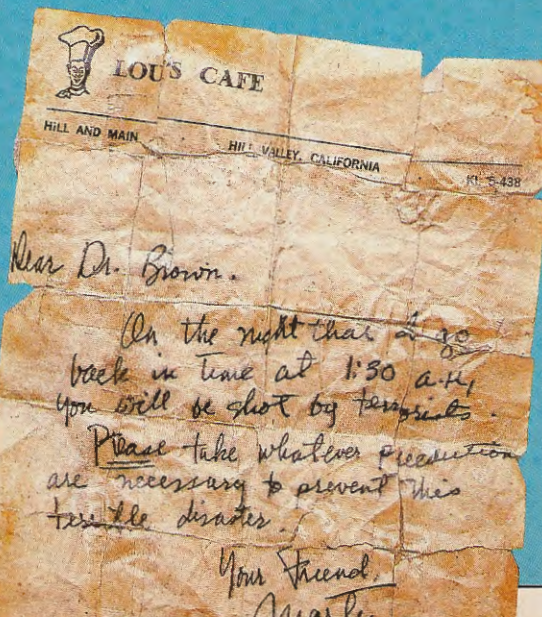 LOU'S CAFE
HILL AND MAIN
HILL VALLEY, CALIFORNIA
KL 5-438
Dear Dr. Brown.
On the night that I go
back in time at 1:30 a.m,
you will be shot by terrorists.
Please take whatever precautions
are necessary to prevent this
terrible disaster.
Your Friend,
Marty